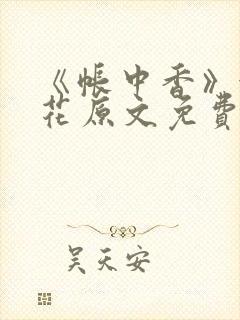 《帐中香》
花原文免費
吴天安